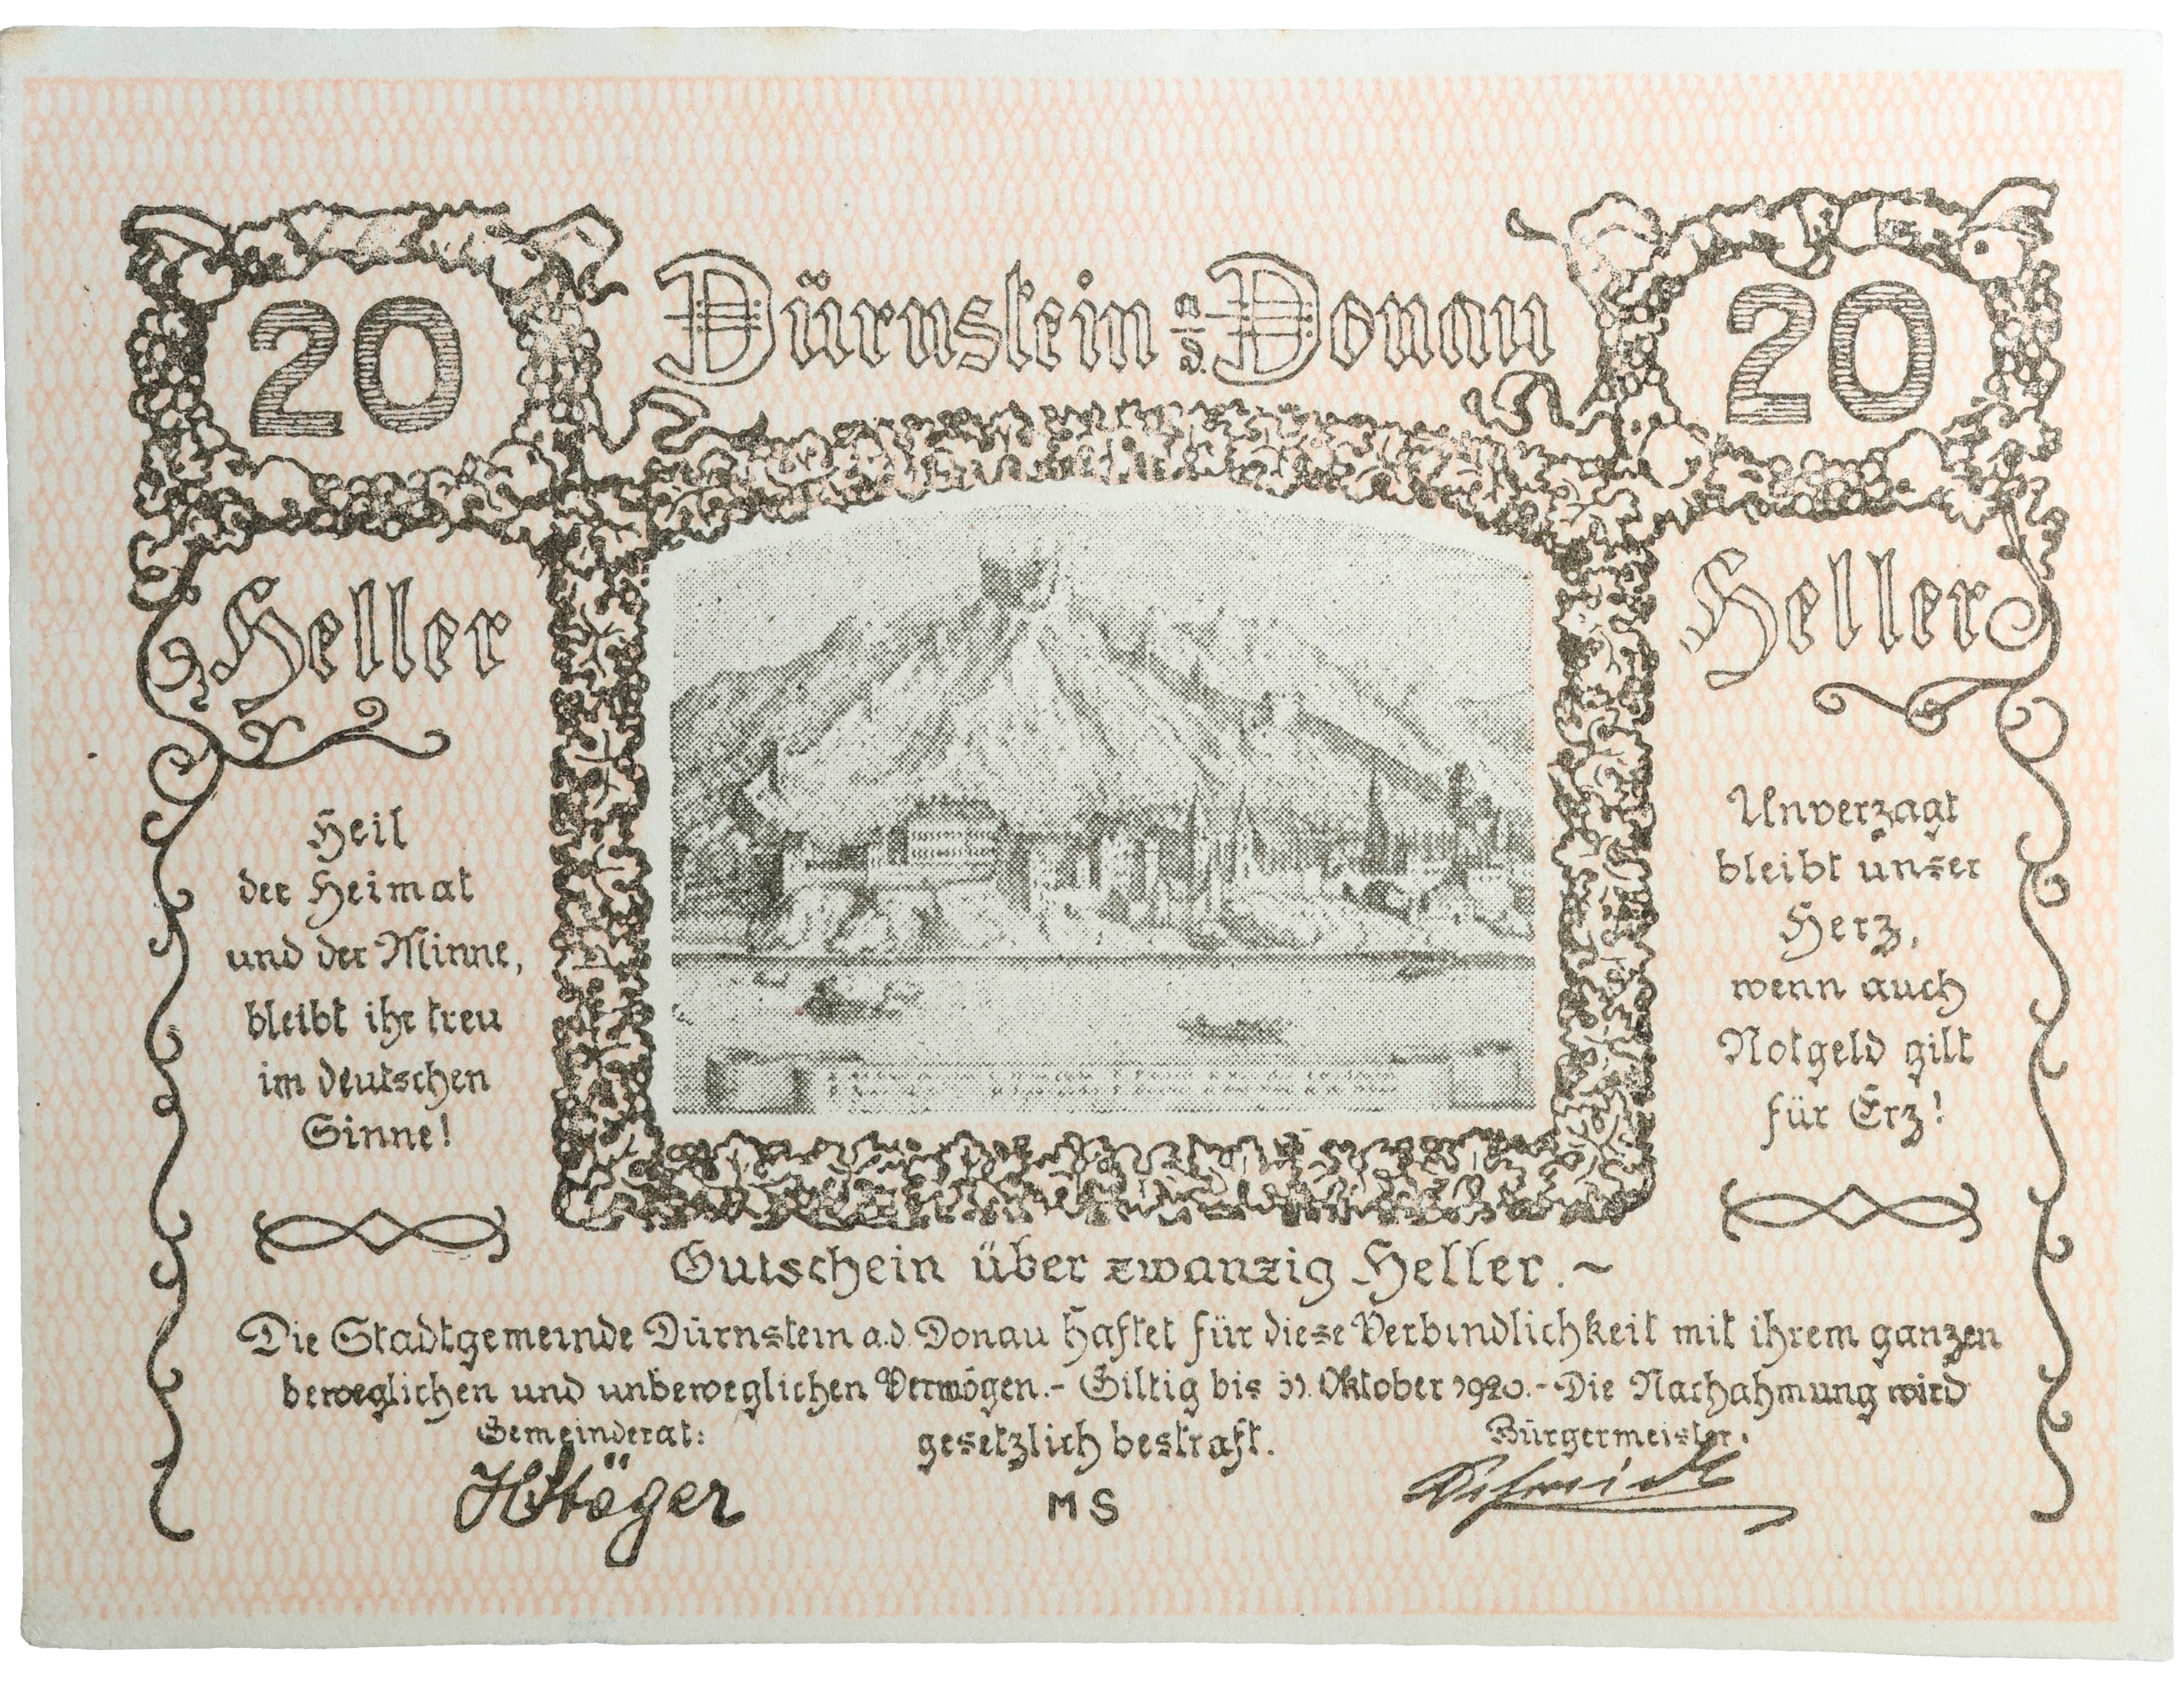 20
Dürnstein a. d. Donau
20
Heller
Heller
Heil
der Heimat
und der Minne,
bleibt ihr treu
im deutschen
Sinne!
Unverzagt
bleibt unser
Herz,
wenn auch
Notgeld gilt
für Erz!
Gutschein über zwanzig Heller.~
Die Stadtgemeinde Dürnstein a.d. Donau haftet für diese Verbindlichkeit mit ihrem ganzen
beweglichen und unbeweglichen Vermögen.- Giltig bis 31. Oktober 1920.- Die Nachahmung wird
gesetzlich bestraft.
Gemeinderat:
Bürgermeister:
MS
Schmidt